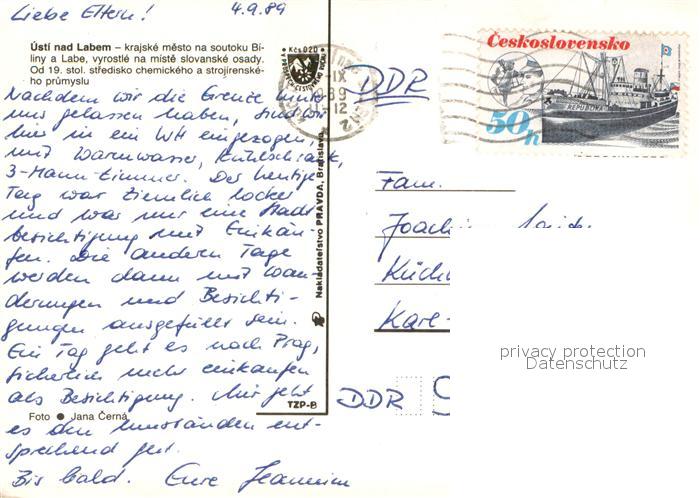 Liebe Eltern!
4.9.89
Ústí nad Labem – krajské město na soutoku Bí-
liny a Labe, vyrostlé na místě slovanské osady.
Od 19. stol. středisko chemického a strojírenské-
ho průmyslu
Nachdem wir die Grenze hinter
uns gelassen haben, sind wir
hier in ein WH eingezogen,
mit Warmwasser, Kühlschrank,
3-Mann-Zimmer. Der heutige
Tag war ziemlich locker
und war nur eine Stadt
besichtigung mit Einkäu-
fen. Die anderen Tage
werden dann mit Wan-
derungen und Besichti-
gungen ausgefüllt sein.
Ein Tag geht es nach Prag,
sicherlich mehr einkaufen
als Besichtigung. Mir geht
es den Umständen ent-
sprechend gut.
Bis bald. Eure
Foto ● Jana Černá
Kčs 0,20
Nakladatelstvo PRAVDA, Bratislava
TZP-B
IX
89
12
DDR
Československo
REPUBLIKA
50h
Fam.
Joachim
Küch
Karl-
DDR
privacy protection
Datenschutz